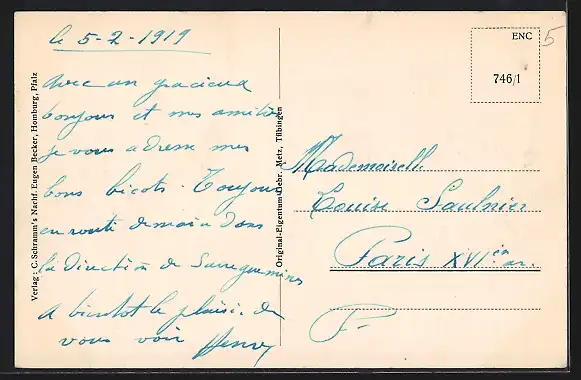 le 5-2-1919
avec un gracieux
bonjour et mes amitiés
je vous adresse mes
bons bicots. Toujours
en route demain dans
la direction de Sarreguemines
A bientot le plaisir de
vous voir Henry
Mademoiselle
Louise Saulnier
Paris XVI em ar.
F-
ENC
746/1
5
Verlag: C. Schramm's Nachf. Eugen Becker, Homburg, Pfalz
Original-Eigentum Gebr. Metz, Tübingen